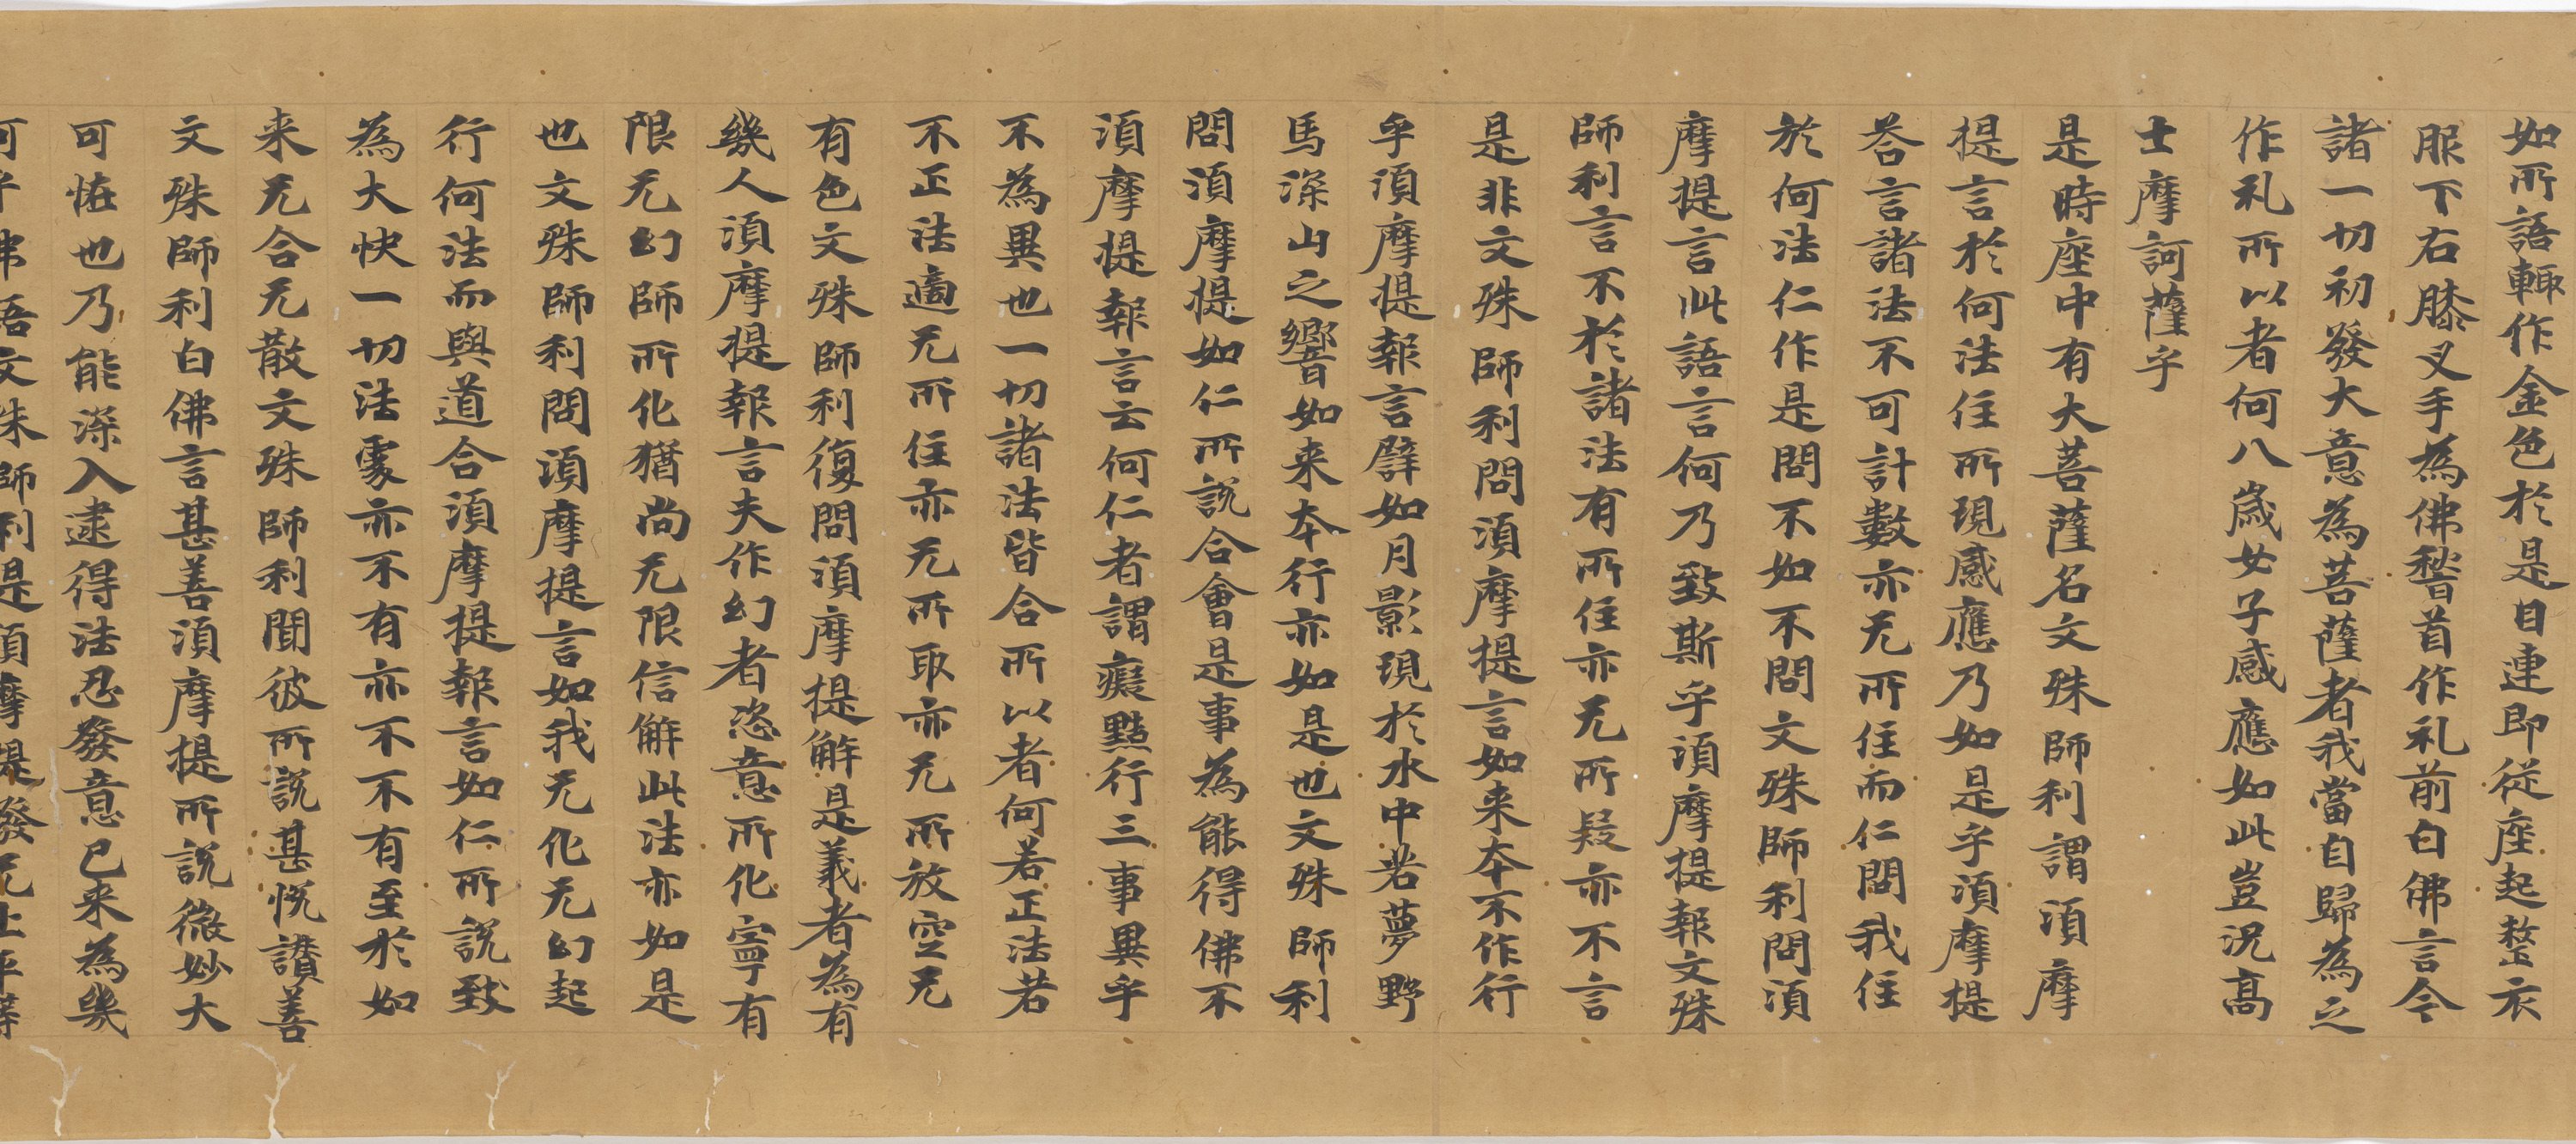 如所語輙作金色於是目連即從座起整衣
服下右膝叉手為佛稽首作礼前白佛言今
諸一切初發大意為菩薩者我當自歸為之
作礼所以者何八歲女子感應如此豈況高
士摩訶薩乎
是時座中有大菩薩名文殊師利謂須摩
提言於何法住所現感應乃如是乎須摩提
荅言諸法不可計數亦无所住而仁問我住
於何法仁作是問不如不問文殊師利問須
摩提言此語言何乃致斯乎須摩提報文殊
師利言不於諸法有所住亦无所疑亦不言
是非文殊師利問須摩提言如来本不作行
乎須摩提報言譬如月影現於水中若夢野
馬深山之響如来本行亦如是也文殊師利
問須摩提如仁所說合會是事為能得佛不
須摩提報言云何仁者謂癡黠行三事異乎
不為異也一切諸法皆合所以者何若正法若
不正法適无所住亦无所取亦无所放空无
有色文殊師利復問須摩提解是義者為有
幾人須摩提報言夫作幻者恣意所化寧有
限无幻師所化猶尚无限信解此法亦如是
也文殊師利問須摩提言如我无化无幻起
行何法而與道合須摩提報言如仁所說致
為大快一切法處亦不有亦不不有至於如
来无合无散文殊師利聞彼所說甚悅讃善
文殊師利白佛言甚善須摩提所說微妙大
可恠也乃能深入逮得法忍發意已来為幾
何乎佛語文殊師利是須摩提發无上平等